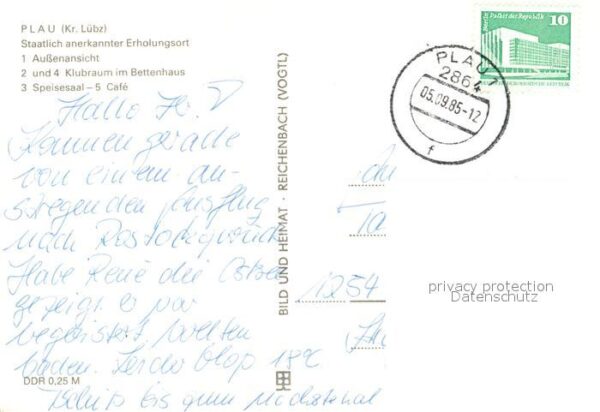 PLAU (Kr. Lübz)
Staatlich anerkannter Erholungsort
1 Außenansicht
2 und 4 Klubraum im Bettenhaus
3 Speisesaal – 5 Café
Hallo
Kommen gerade
von einem an-
strengenden Ausflug
nach Rostock zurück
Habe René die Ostsee
gezeigt er war
begeistert wollten
baden. Leider 18°C
bis zum
DDR 0,25 M
BILD UND HEIMAT · REICHENBACH (VOGTL)
Berlin Palast der Republik
10
PLAU 1
2864
05.09.85-12
f
1254
privacy protection
Datenschutz